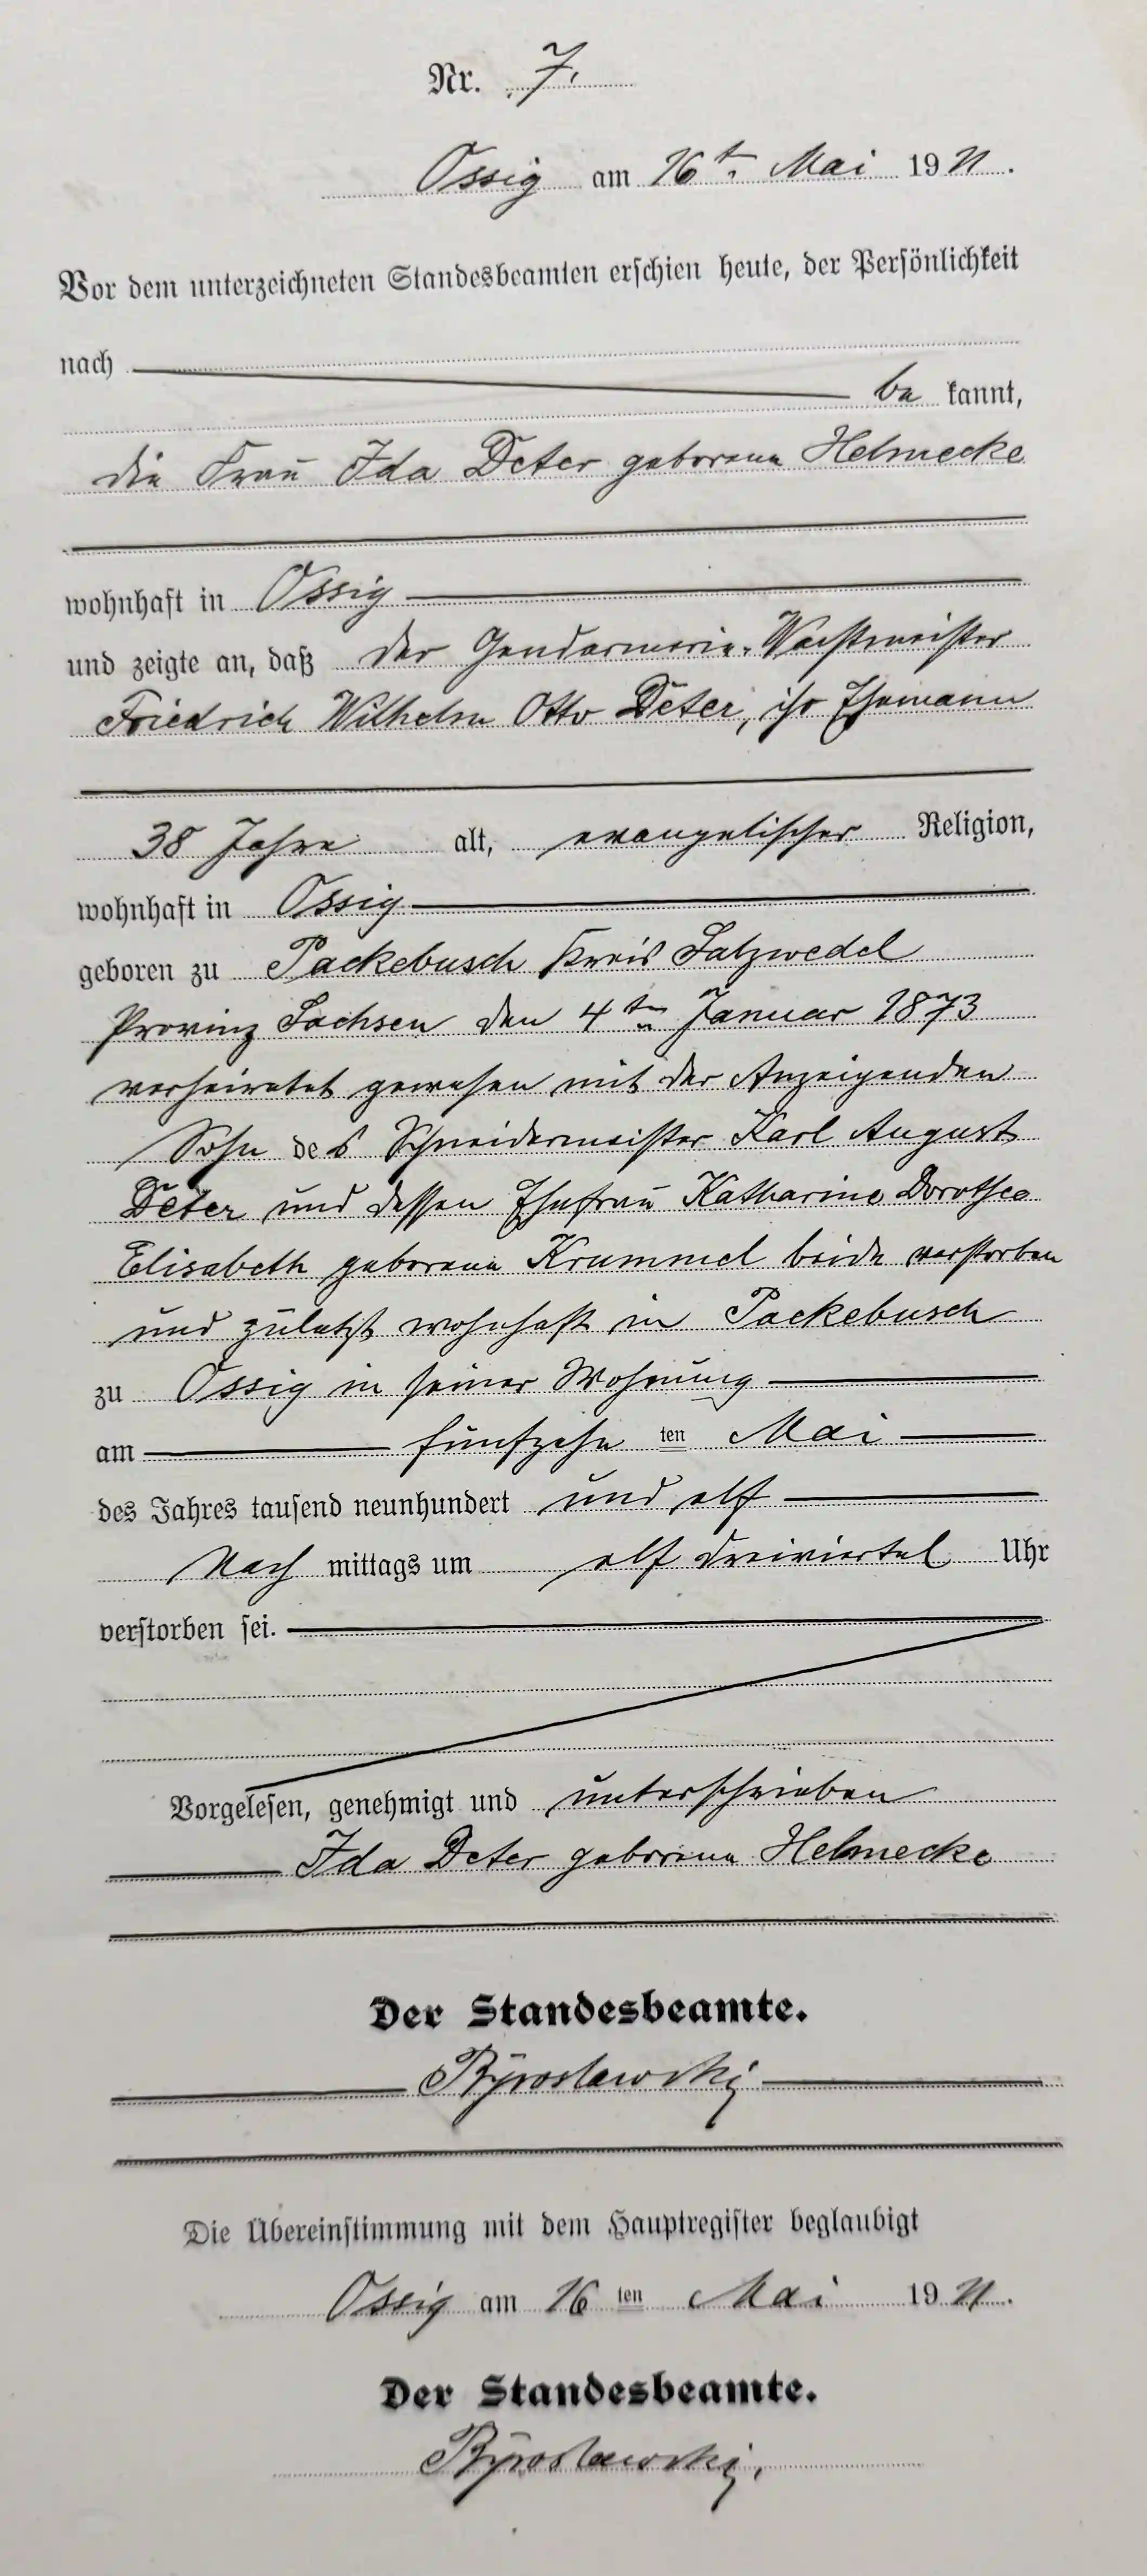 Nr. 7.
Ossig am 16t. Mai 1911.
Vor dem unterzeichneten Standesbeamten erschien heute, der Persönlichkeit
nach
be kannt,
die Frau Ida Deter geborene Helmecke
wohnhaft in Ossig
und zeigte an, daß der Gendarmerie-Wachtmeister
Friedrich Wilhelm Otto Deter, ihr Ehemann
38 Jahre alt, evangelischer Religion,
wohnhaft in Ossig
geboren zu Packebusch Kreis Salzwedel
Provinz Sachsen den 4ten Januar 1873
verheiratet gewesen mit der Anzeigenden
Sohn des Schneidermeister Karl August
Deter und dessen Ehefrau Katharine Dorothee
Elisabeth geborene Krummel beide verstorben
und zuletzt wohnhaft in Packebusch
zu Ossig in seiner Wohnung
am fünfzehn ten Mai
des Jahres tausend neunhundert und elf
Nach mittags um elf dreiviertel Uhr
verstorben sei.
Vorgelesen, genehmigt und unterschrieben
Ida Deter geborene Helmecke
Der Standesbeamte.
Die Übereinstimmung mit dem Hauptregister beglaubigt
Ossig am 16 ten Mai 1911.
Der Standesbeamte.